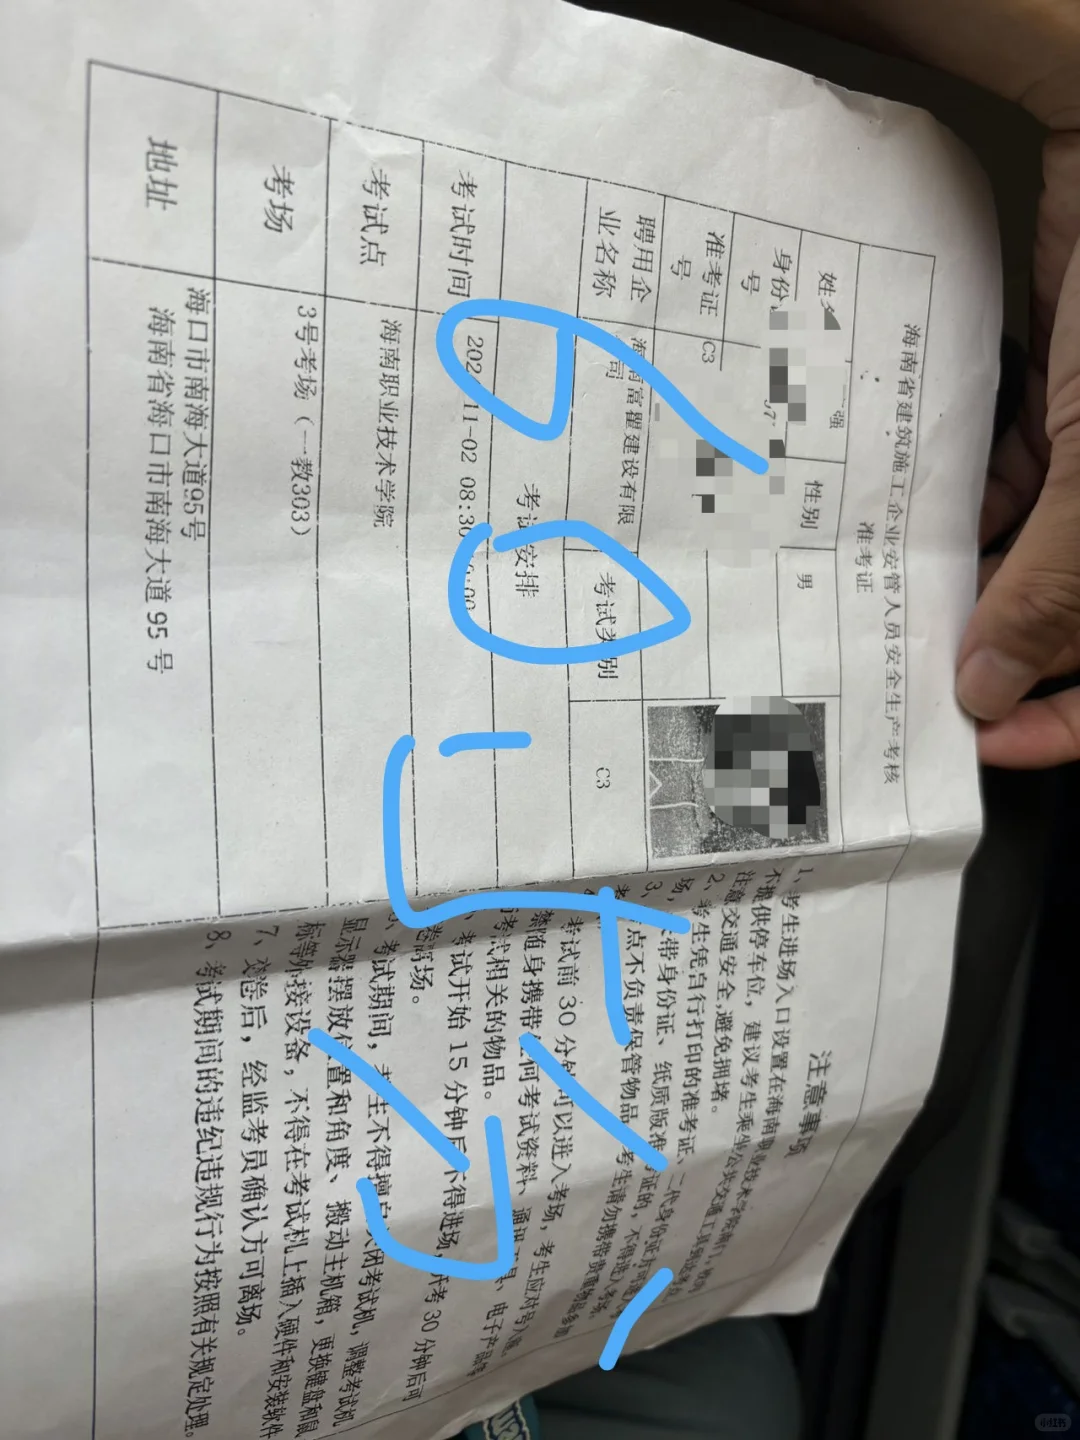 海南省建筑施工企业安管人员安全生产考核
准考证
姓名
强
性别
男
身份
号
准考证
号
C3
聘用企
业名称
海南富瞿建设有限
公司
考试类别
C3
考试安排
考试时间
11-02 08:30
考试点
海南职业技术学院
考场
3号考场（一教303）
地址
海口市南海大道95号
海南省海口市南海大道 95 号
注意事项
1、考生进场入口设置在海南职业技术学院南门，
不提供停车位，建议考生乘坐公共交通工具到达考点
注意交通安全,避免拥堵。
2、考生凭自行打印的准考证、二代身份证方可进
场，带身份证、纸质版准考证的，不得进入考场。
3、
点不负责保管物品 考生请勿携带贵重物品参加
考试前 30 分钟可以进入考场，考生应对号入座。
禁随身携带任何考试资料、通讯 电子产品等
考试相关的物品。
考试开始 15 分钟后不得进场，开考 30 分钟后可
卷离场。
考试期间，考生不得擅自关闭考试机，调整考试机
显示器摆放位置和角度、搬动主机箱，更换键盘和鼠
标等外接设备，不得在考试机上插入硬件和安装软件
7、交卷后，经监考员确认方可离场。
8、考试期间的违纪违规行为按照有关规定处理。
小红书